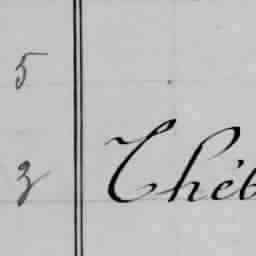 5
3 Théb